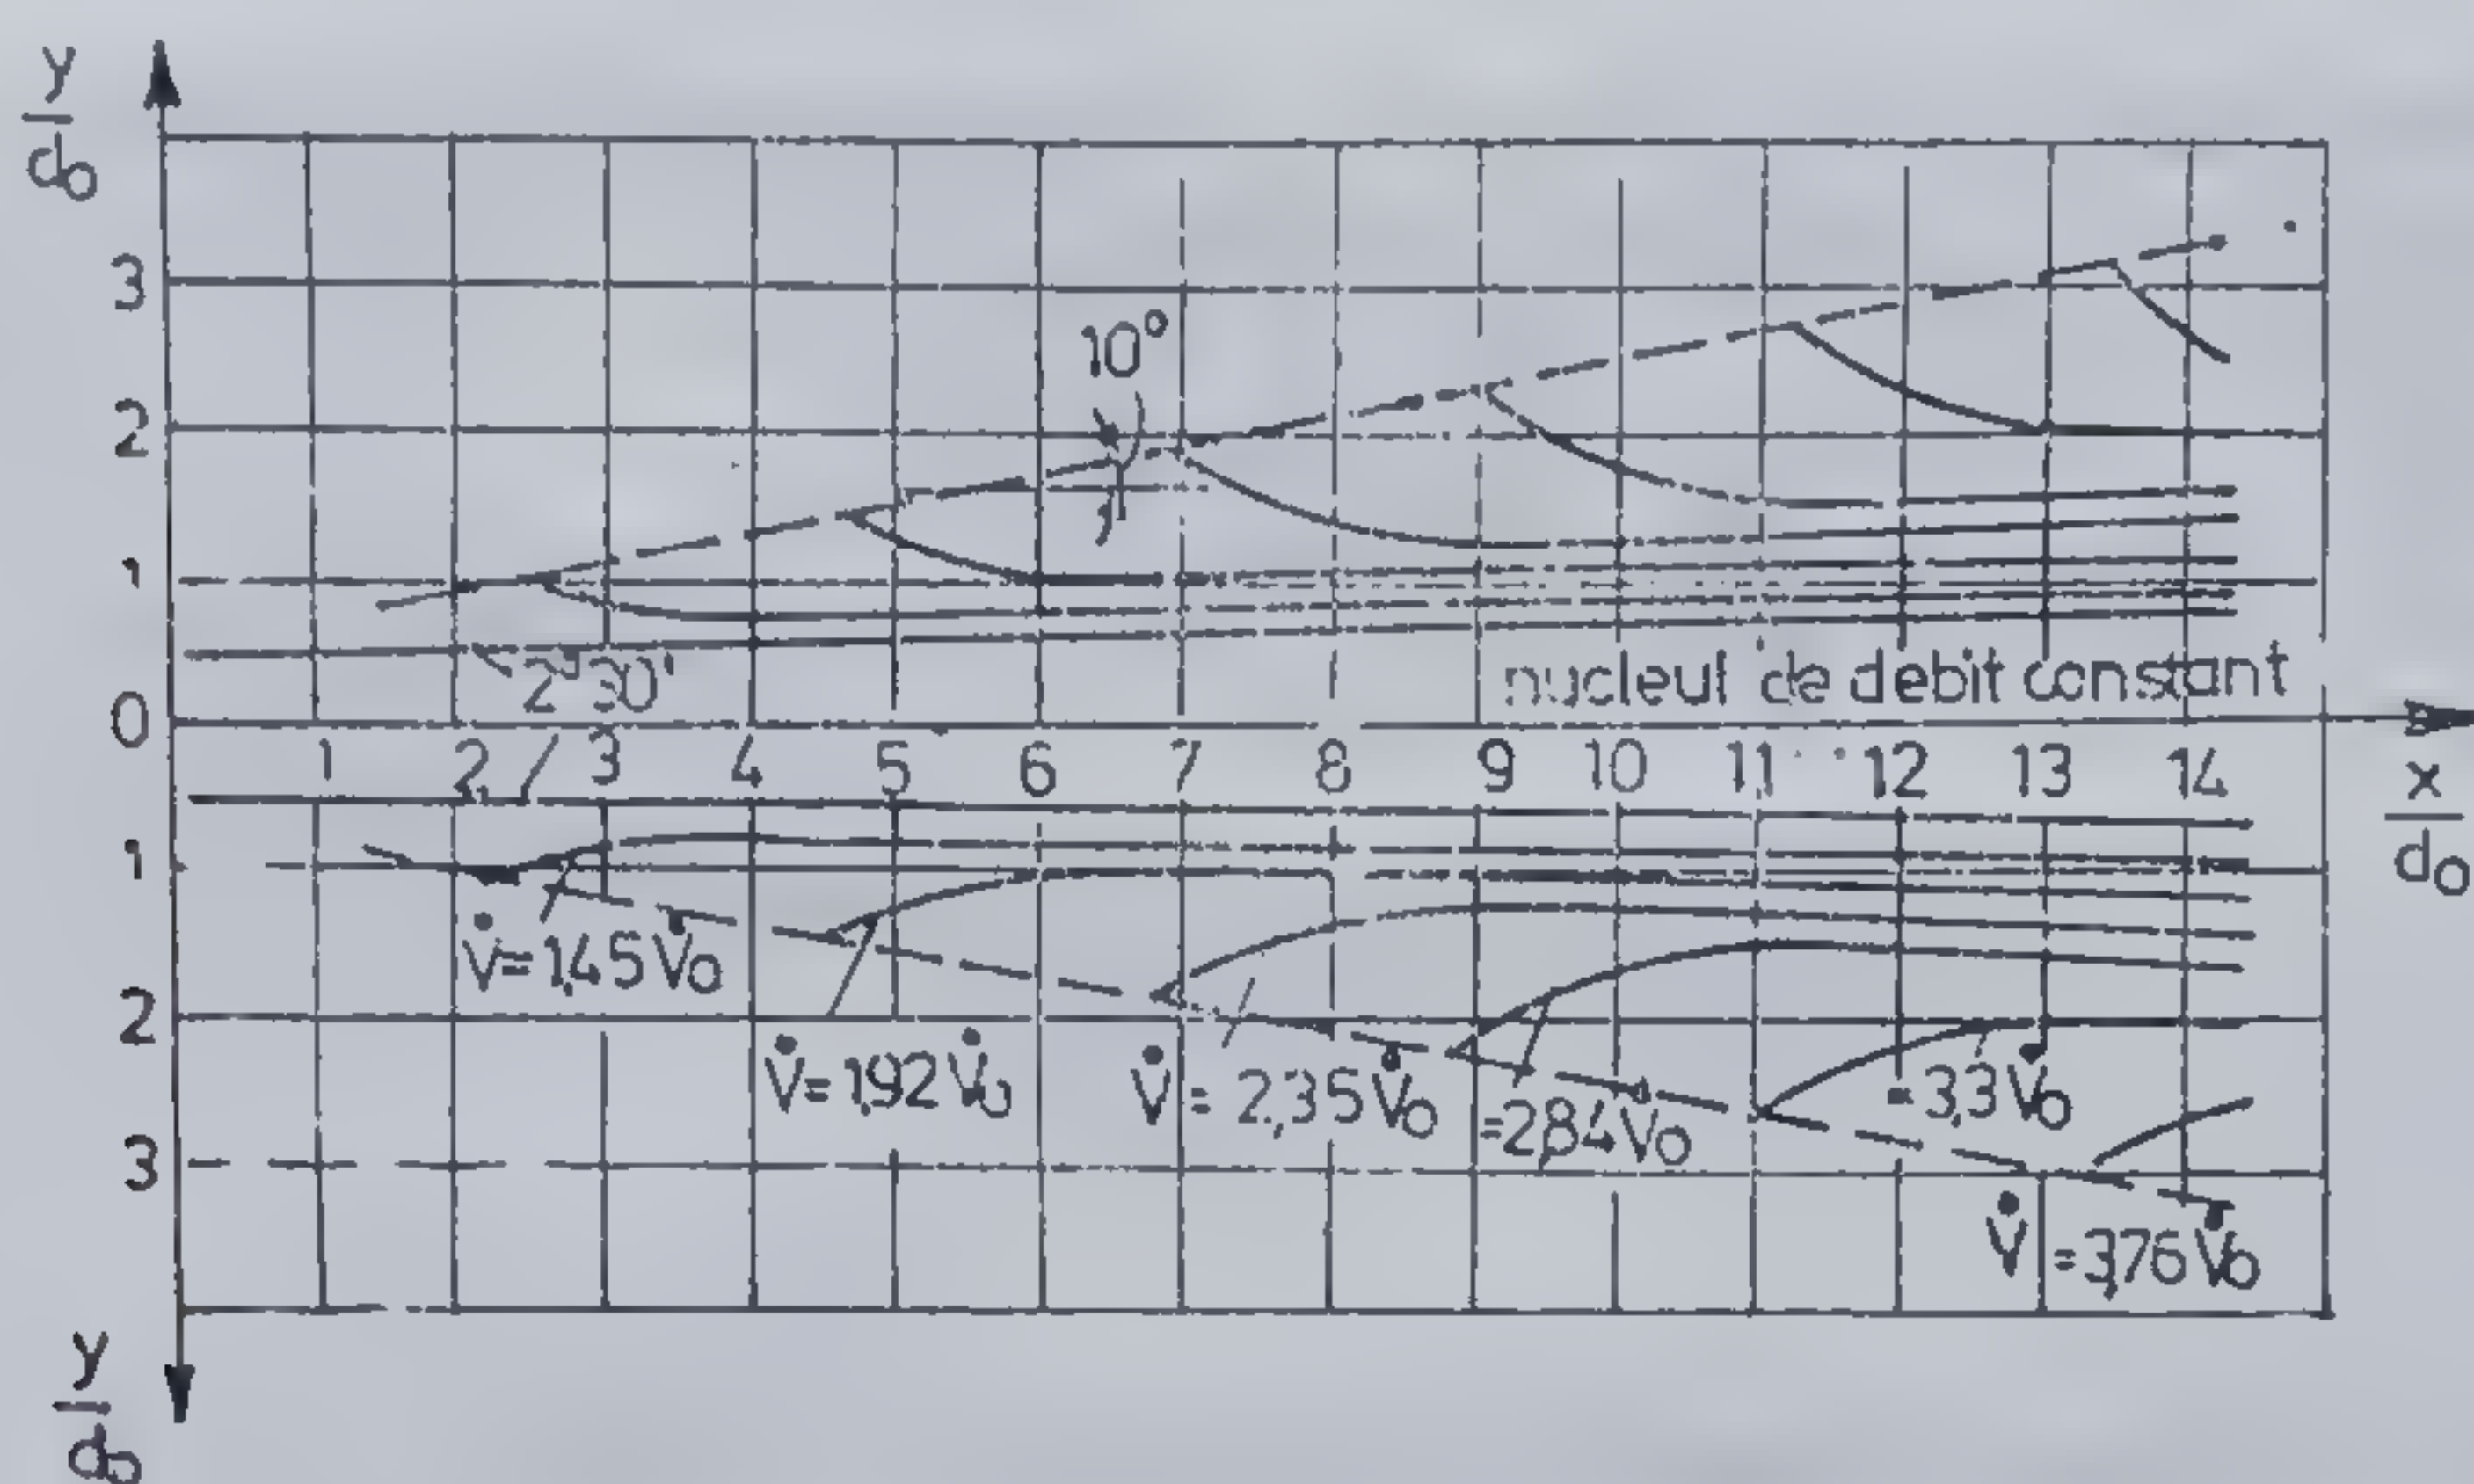 y/d₀
3
10°
2
1
2°30'
nucleul de debit constant
0
1 2 3 4 5 6 7 8 9 10 11 12 13 14
x/d₀
1
V̇=1,45 V̇₀
2
V̇=1,92 V̇₀
V̇= 2,35 V̇₀
=2,84 V̇₀
=3,3 V̇₀
3
V̇=3,76 V̇₀
y/d₀